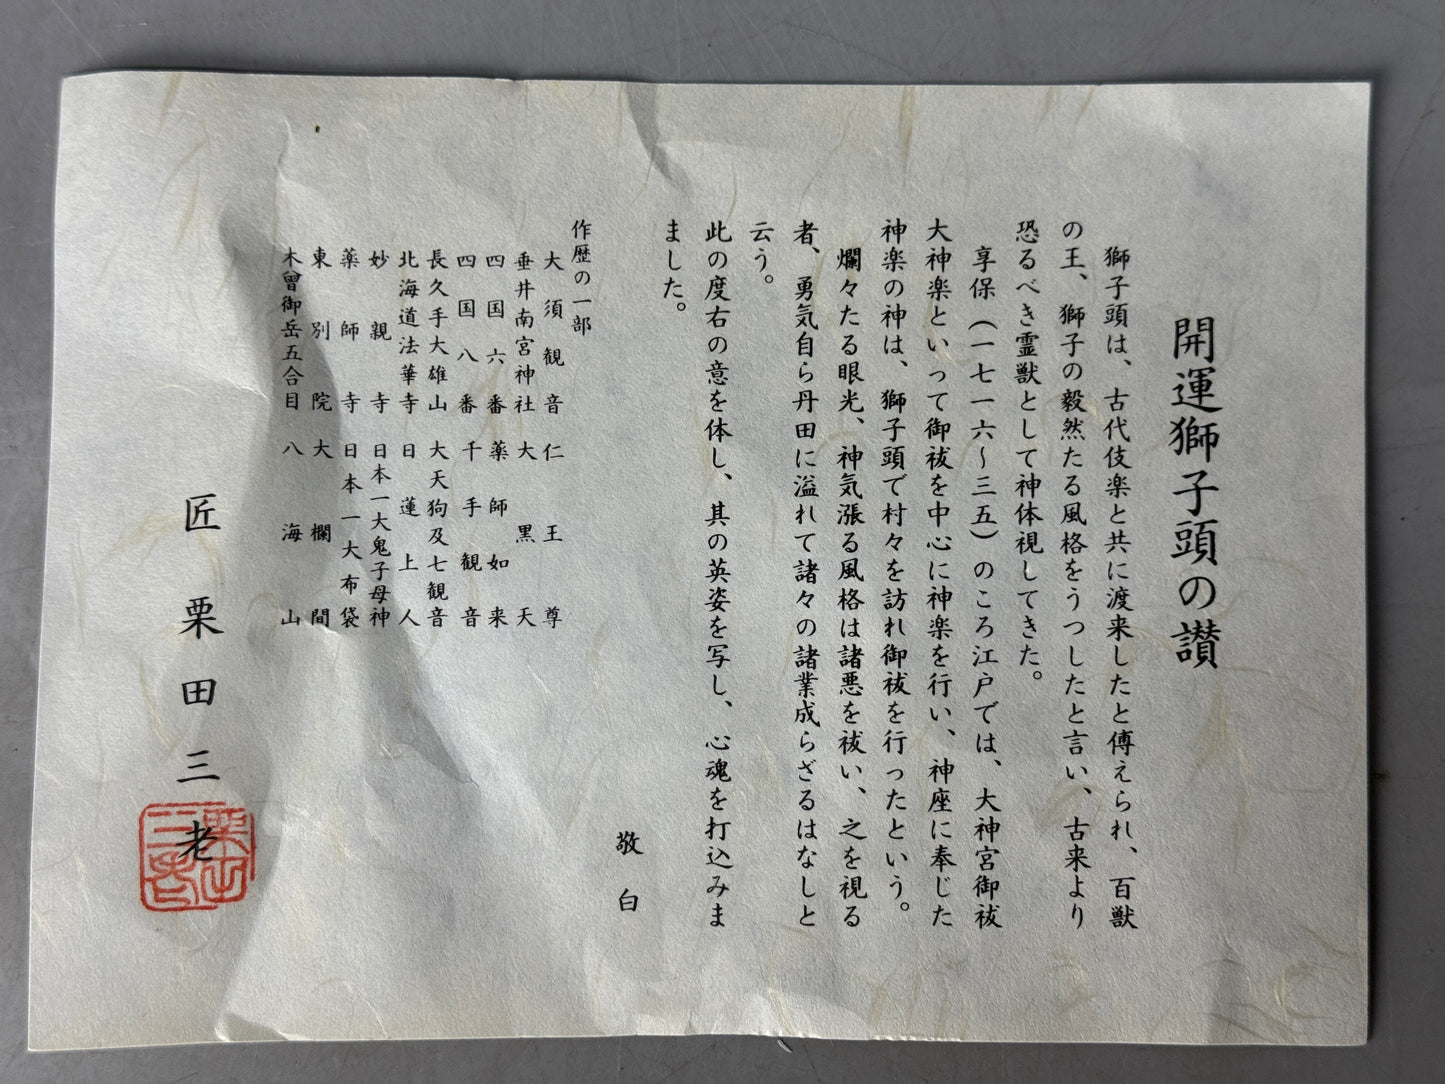 開運獅子頭の讃
獅子頭は、古代伎楽と共に渡来したと傅えられ、百獣
の王、獅子の毅然たる風格をうつしたと言い、古来より
恐るべき霊獣として神体視してきた。
享保（一七一六～三五）のころ江戸では、大神宮御祓
大神楽といって御祓を中心に神楽を行い、神座に奉じた
神楽の神は、獅子頭で村々を訪れ御祓を行ったという。
爛々たる眼光、神気漲る風格は諸悪を祓い、之を視る
者、勇気自ら丹田に溢れて諸々の諸業成らざるはなしと
云う。
此の度右の意を体し、其の英姿を写し、心魂を打込みま
ました。
敬白
作歴の一部
大須観音 仁王尊
垂井南宮神社 大黒天
四国六番 薬師如来
四国八番 千手観音
長久手大雄山 大天狗及七観音
北海道法華寺 日蓮上人
妙親寺 日本一大鬼子母神
薬師寺 日本一大布袋
東別院 大欄間
木曾御岳五合目 八海山
匠 栗田三老